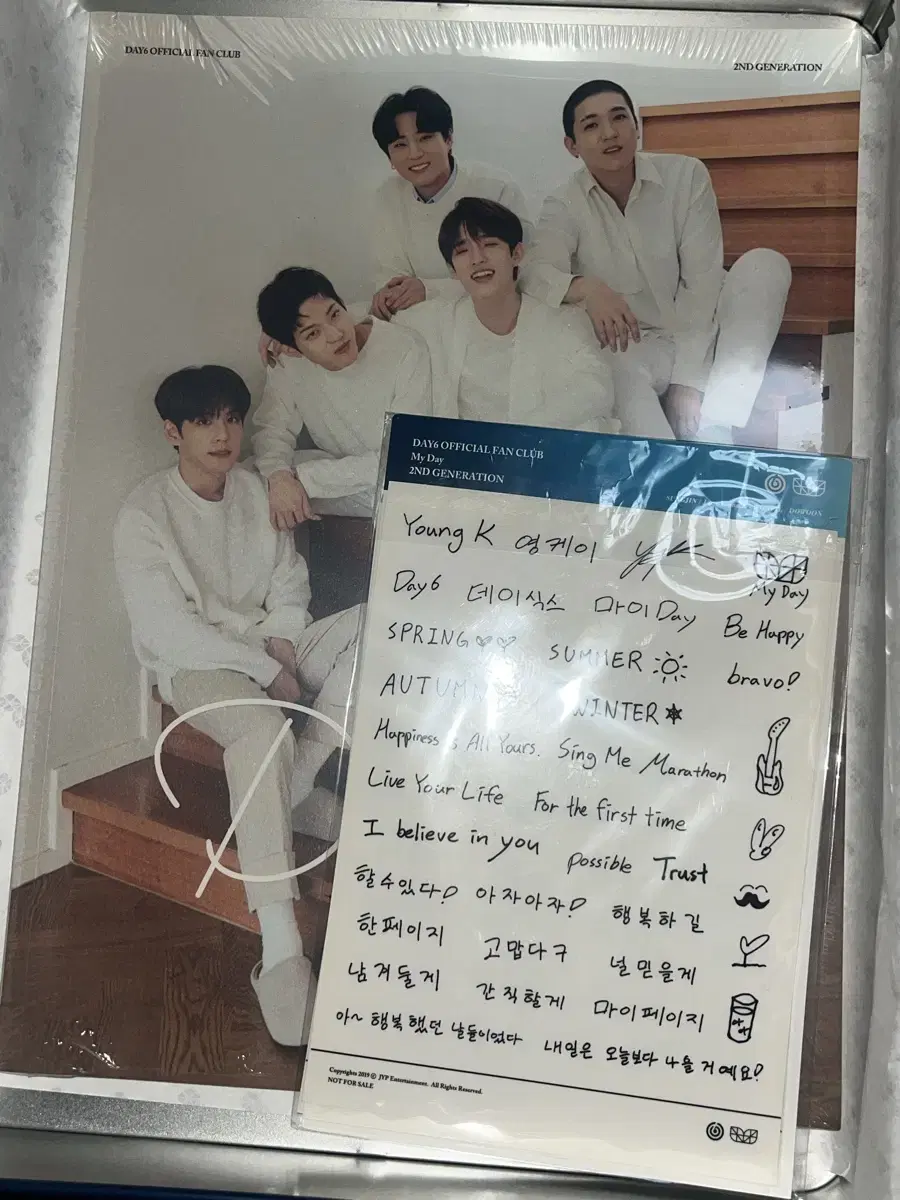 DAY6 OFFICIAL FAN CLUB
2ND GENERATION
DAY6 OFFICIAL FAN CLUB
My Day
2ND GENERATION
DOWOON
Young K 영케이 YK
My Day
Day6 데이식스 마이Day Be Happy
SPRING SUMMER bravo!
AUTUMN WINTER
Happiness is All Yours. Sing Me Marathon
Live Your Life For the first time
I believe in you possible Trust
할수있다! 아자아자! 행복하길
한페이지 고맙다구 널믿을게
남겨둘게 간직할게 마이페이지
아~ 행복했던 날들이었다 내일은 오늘보다 나을 거예요!
Copyrights 2019 ⓒ JYP Entertainment. All Rights Reserved.
NOT FOR SALE